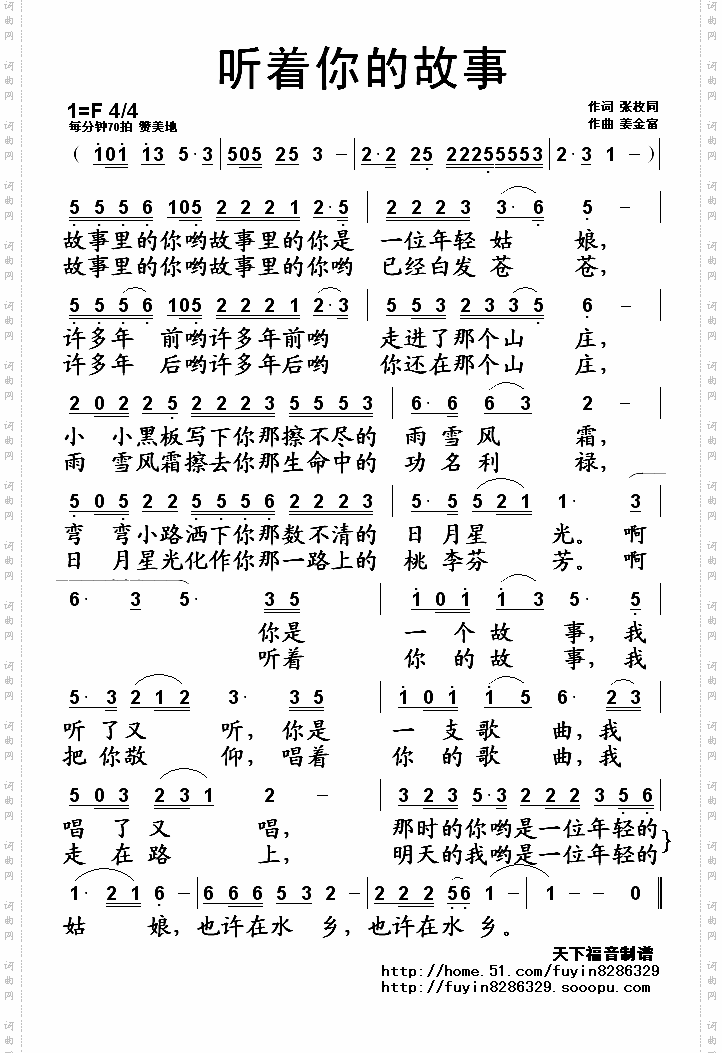 听着你的故事
1=F 4/4
作词 张枚同
每分钟70拍 赞美地
作曲 姜金富
( 101 13 5·3 | 505 25 3 － | 2·2 25 22255553 | 2·3 1 － ) |
5 5 5 6 105 2 2 2 1 2·5 | 2 2 2 3 3· 6 5 － |
故事里的你哟故事里的你是 一位年轻 姑 娘，
故事里的你哟故事里的你哟 已经白发 苍 苍，
5 5 5 6 105 2 2 2 1 2·3 | 5 5 3 2 3 3 5 6 － |
许多年 前哟许多年前哟 走进了那个山 庄，
许多年 后哟许多年后哟 你还在那个山 庄，
2 0 2 2 5 2 2 2 3 5 5 5 3 | 6· 6 6 3 2 － |
小 小黑板写下你那擦不尽的 雨雪风 霜，
雨 雪风霜擦去你那生命中的 功名利 禄，
5 0 5 2 2 5 5 5 6 2 2 2 3 | 5· 5 5 2 1 1· 3
弯 弯小路洒下你那数不清的 日月星 光。 啊
日 月星光化作你那一路上的 桃李芬 芳。 啊
6· 3 5· 3 5 | 1 0 1 1 3 5· 5
你是 一 个 故 事，我
听着 你 的 故 事，我
5· 3 2 1 2 3· 3 5 | 1 0 1 1 5 6· 2 3
听 了 又 听，你是 一 支 歌 曲，我
把 你 敬 仰，唱着 你 的 歌 曲，我
5 0 3 2 3 1 2 － | 3 2 3 5·3 2 2 2 3 5 5 6
唱 了 又 唱， 那时的你哟是一位年轻的
走 在 路 上， 明天的我哟是一位年轻的 }
1· 2 1 6 － | 6 6 6 5 3 2 － | 2 2 2 56 1 － | 1 － － 0 ‖
姑 娘，也许在水 乡，也许在水 乡。
天下福音制谱
http://home.51.com/fuyin8286329
http://fuyin8286329.sooopu.com
词曲网